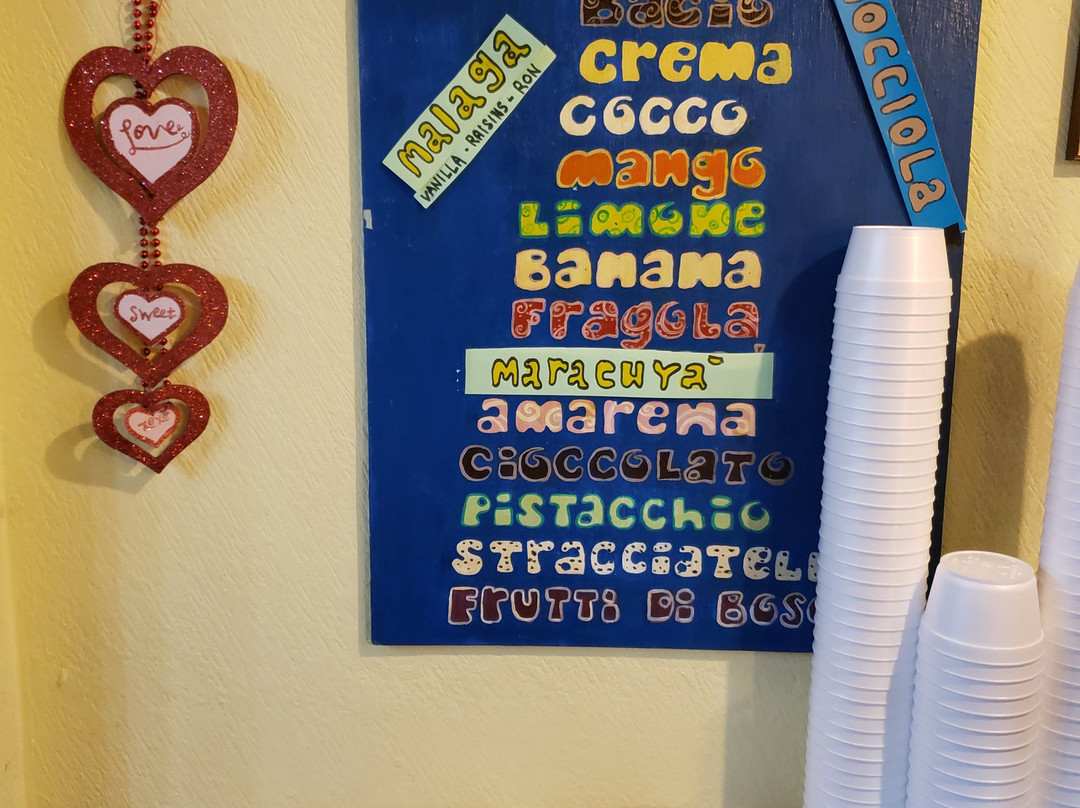 Love
Sweet
Malaga
VANILLA - RAISINS - RON
Bacio
crema
cocco
mango
Limone
Banana
Fragola
Maracuya'
amarena
cioccolato
Pistacchio
Stracciatell
Frutti Di Bosc
occiola